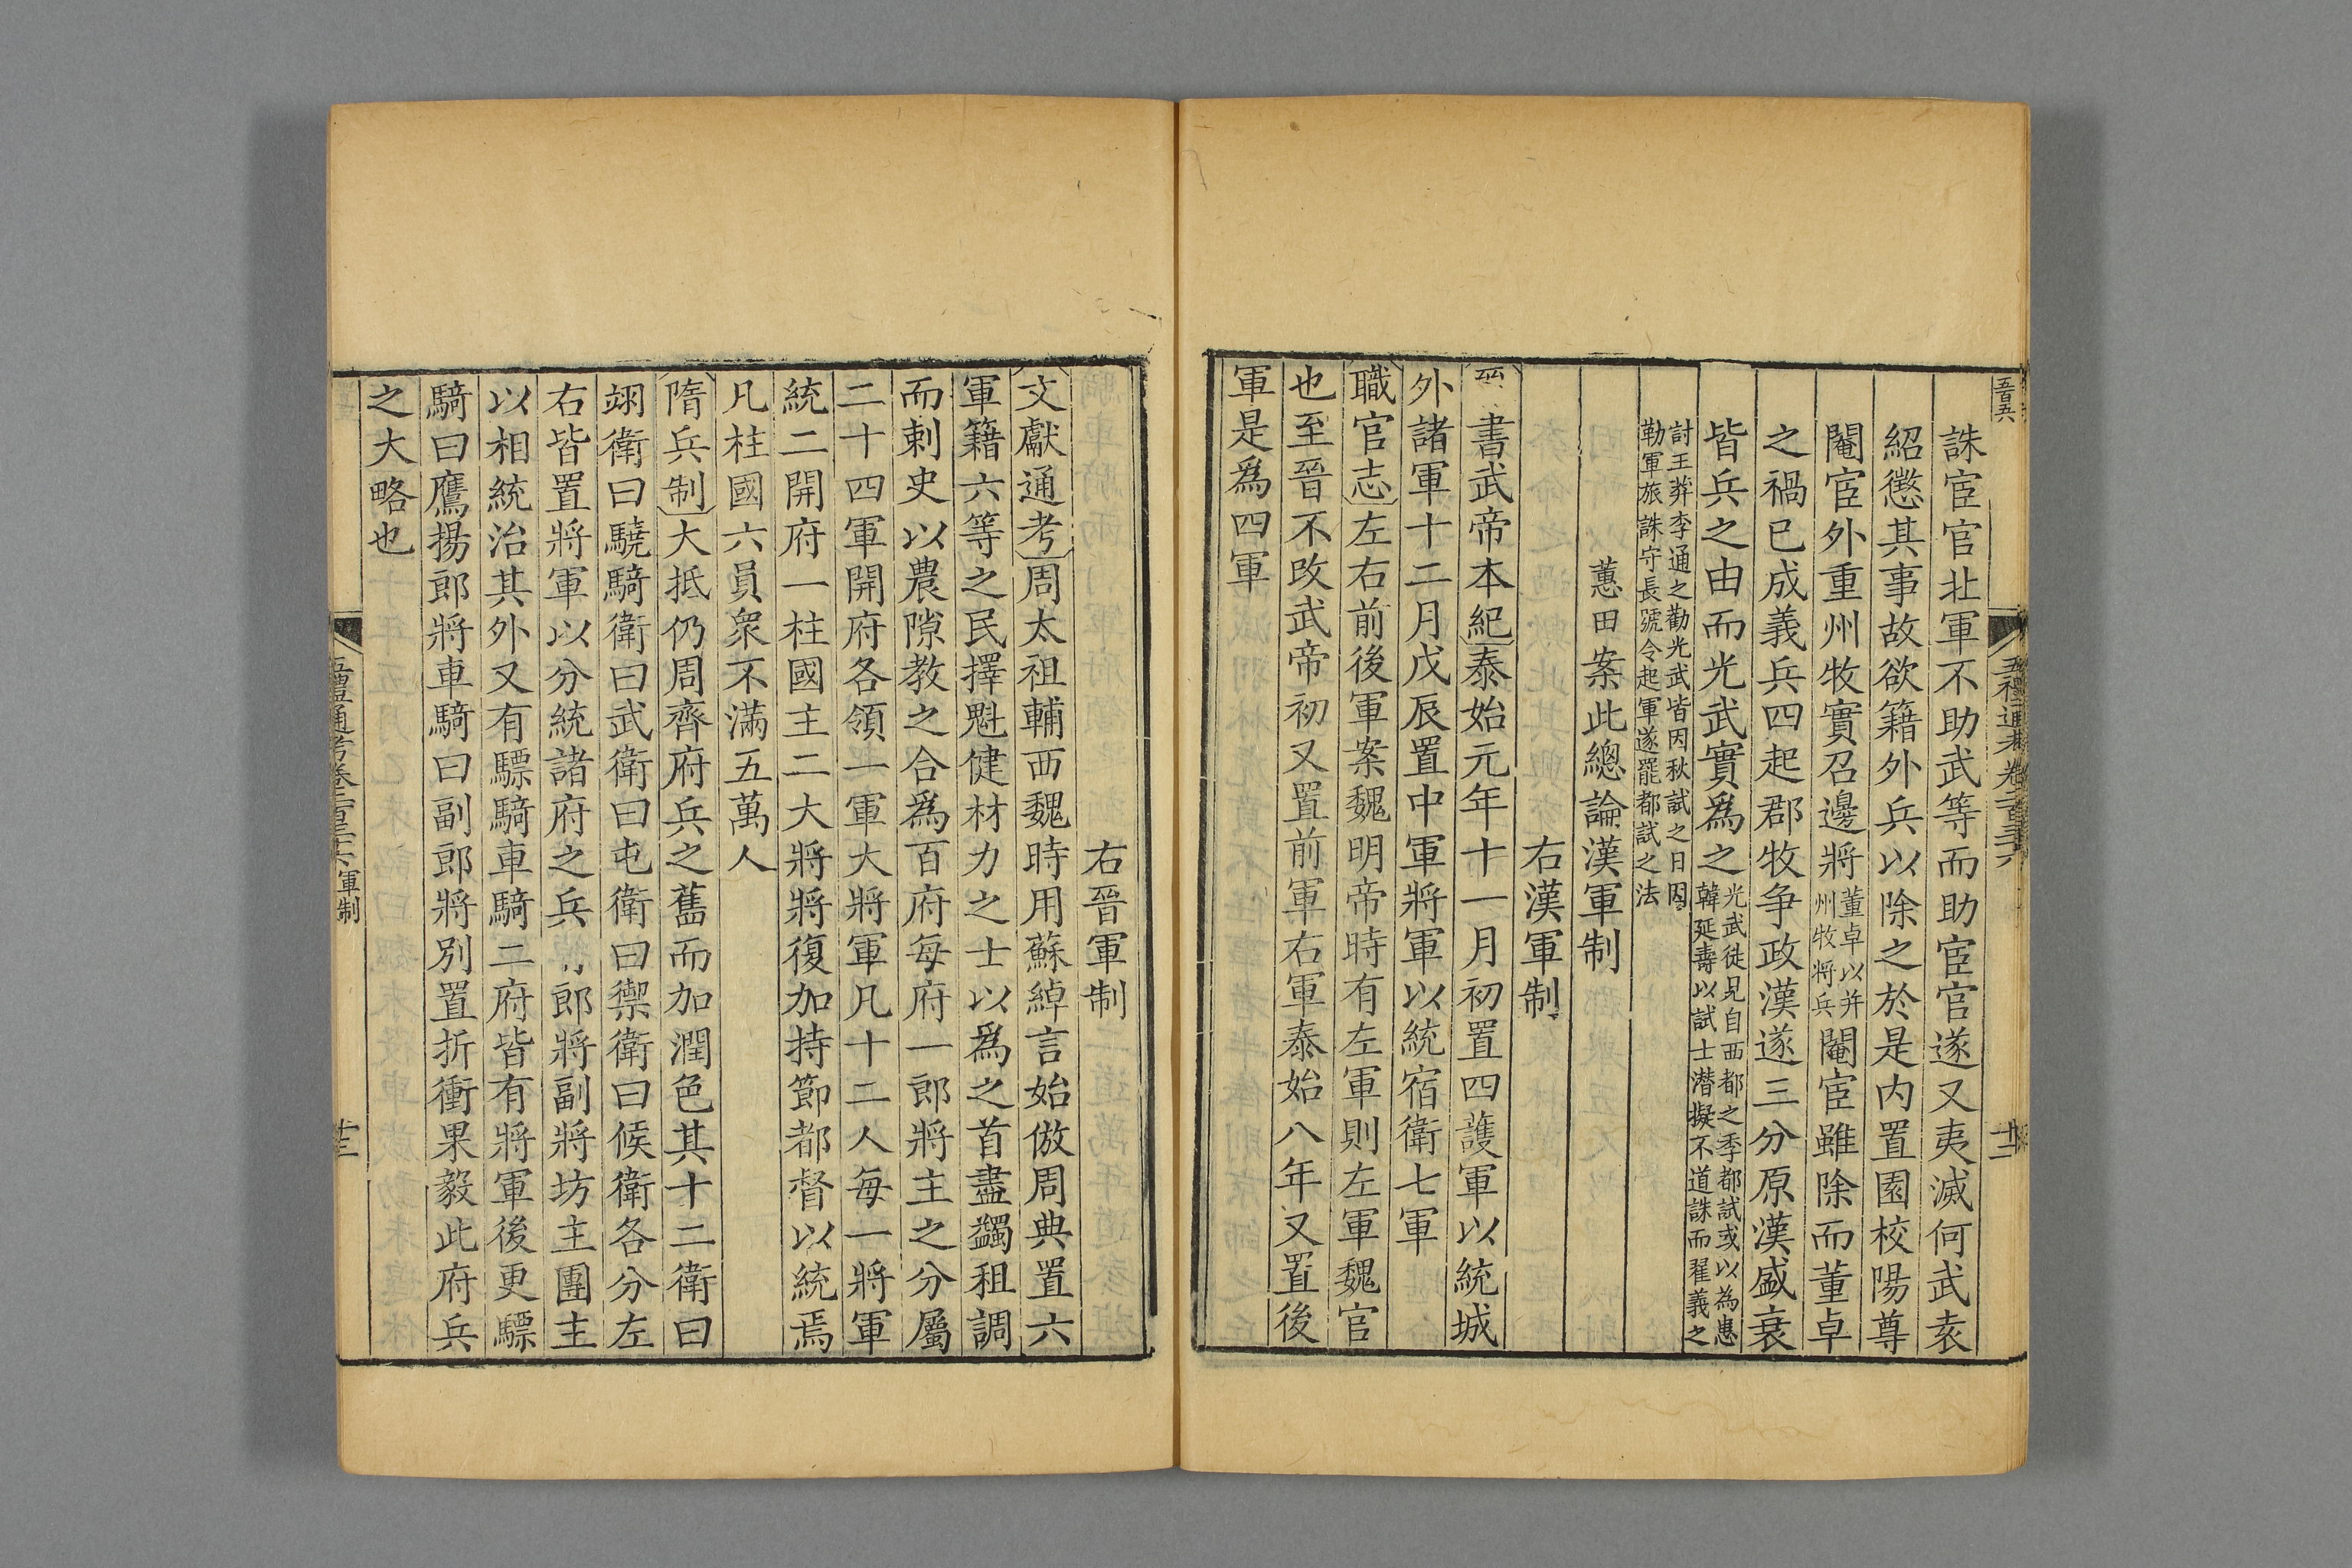 誅宦官北軍不助武等而助宦官遂又夷滅何武袁
紹懲其事故欲籍外兵以除之於是内置園校陽尊
閹宦外重州牧實召邊將董卓以并州牧將兵閹宦雖除而董卓
之禍已成義兵四起郡牧争政漢遂三分原漢盛衰
皆兵之由而光武實爲之光武徒見自西都之季都試或以為患韓延壽以試士潜擬不道誅而翟義之
討王莽李通之勸光武皆因秋試之日因勒軍旅誅守長號令起軍遂罷都試之法
蕙田案此總論漢軍制
右漢軍制
書武帝本紀泰始元年十一月初置四護軍以統城
外諸軍十二月戊辰置中軍將軍以統宿衛七軍
職官志左右前後軍案魏明帝時有左軍則左軍魏官
也至晉不改武帝初又置前軍右軍泰始八年又置後
軍是爲四軍
右晉軍制
文獻通考周太祖輔西魏時用蘇綽言始倣周典置六
軍籍六等之民擇魁健材力之士以爲之首盡蠲租調
而刺史以農隙教之合爲百府每府一郎將主之分屬
二十四軍開府各領一軍大將軍凡十二人每一將軍
統二開府一柱國主二大將將復加持節都督以統焉
凡柱國六員衆不滿五萬人
隋兵制大抵仍周齊府兵之舊而加潤色其十二衛曰
翊衛曰驍騎衛曰武衛曰屯衛曰禦衛曰候衛各分左
右皆置將軍以分統諸府之兵郎將副將坊主團主
以相統治其外又有驃騎車騎二府皆有將軍後更驃
騎曰鷹揚郎將車騎曰副郎將別置折衝果毅此府兵
之大略也
五禮通考卷二百三十六 軍制